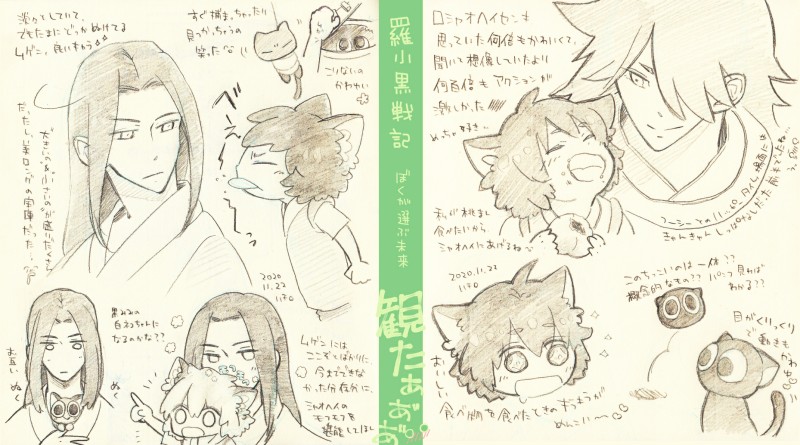 淡々としていて、
でもたまにどっかぬけてる
ムゲン、良いすわぅ
すぐ捕まっちゃったり
見つかっちゃうの
笑った
こりないの
かわいい
べー
大きいのと小さいのが盛りだくさん
だったし、美ロングの宝庫だった
2020
11.22
お互い
ぬく
ぬく
黒みみの
白ネコちゃんに
なるのかな??
ムゲンには
ここぞとばかりに
今までできな
かった分存分に、
シャオヘイの
モフモフを
堪能してほし
羅小黒戦記
ぼくが選ぶ未来
観たぁぁぁ
ロシャオヘイセンキ
思っていた何倍もかわいくて、
聞いて想像していたより
何百倍もアクションが
激しかった
めっちゃ好き
私が桃まん
食べたいから
シャオヘイにあげるね
2020.11.22
おいしい
食べ物を食べたときのおまえが
めんこい〜
このちっこいのは一体??
概念的なもの?? パンフ見れば
わかる??
目がくりっくり
で動きも
かわゆ